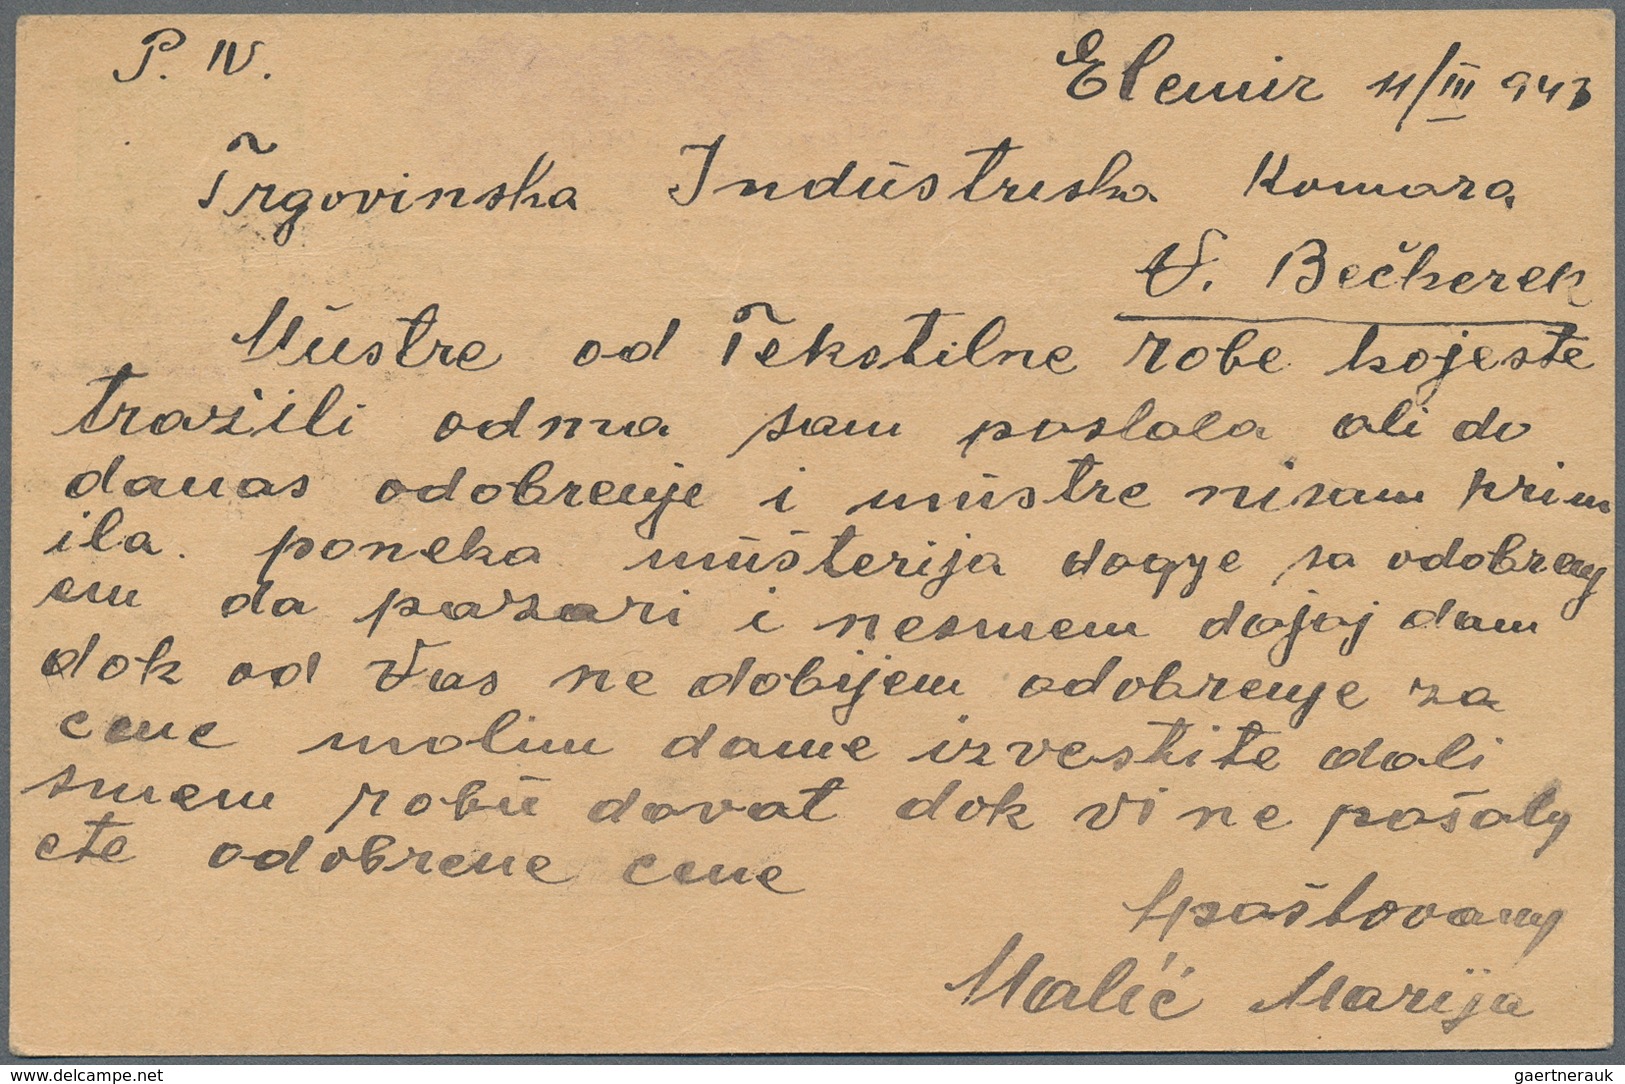 P. IV.
Elemir 11/III 943
Trgovinska Industriska Komara
V. Bečkerek
Mustre od Tekstilne robe kojeste
tražili odma sam poslala ali do
danas odobrenje i mustre nisam prim
ila. poneka mušterija dogje sa odobrenj
em da pazari i nesmem dajaj dam
dok od Vas ne dobijem odobrenje za
cene molim dame izvestite dali
smem robu davat dok vi ne pošalj
ete odobrene cene
Malić Marija
delcampe.net
gaertnerauk